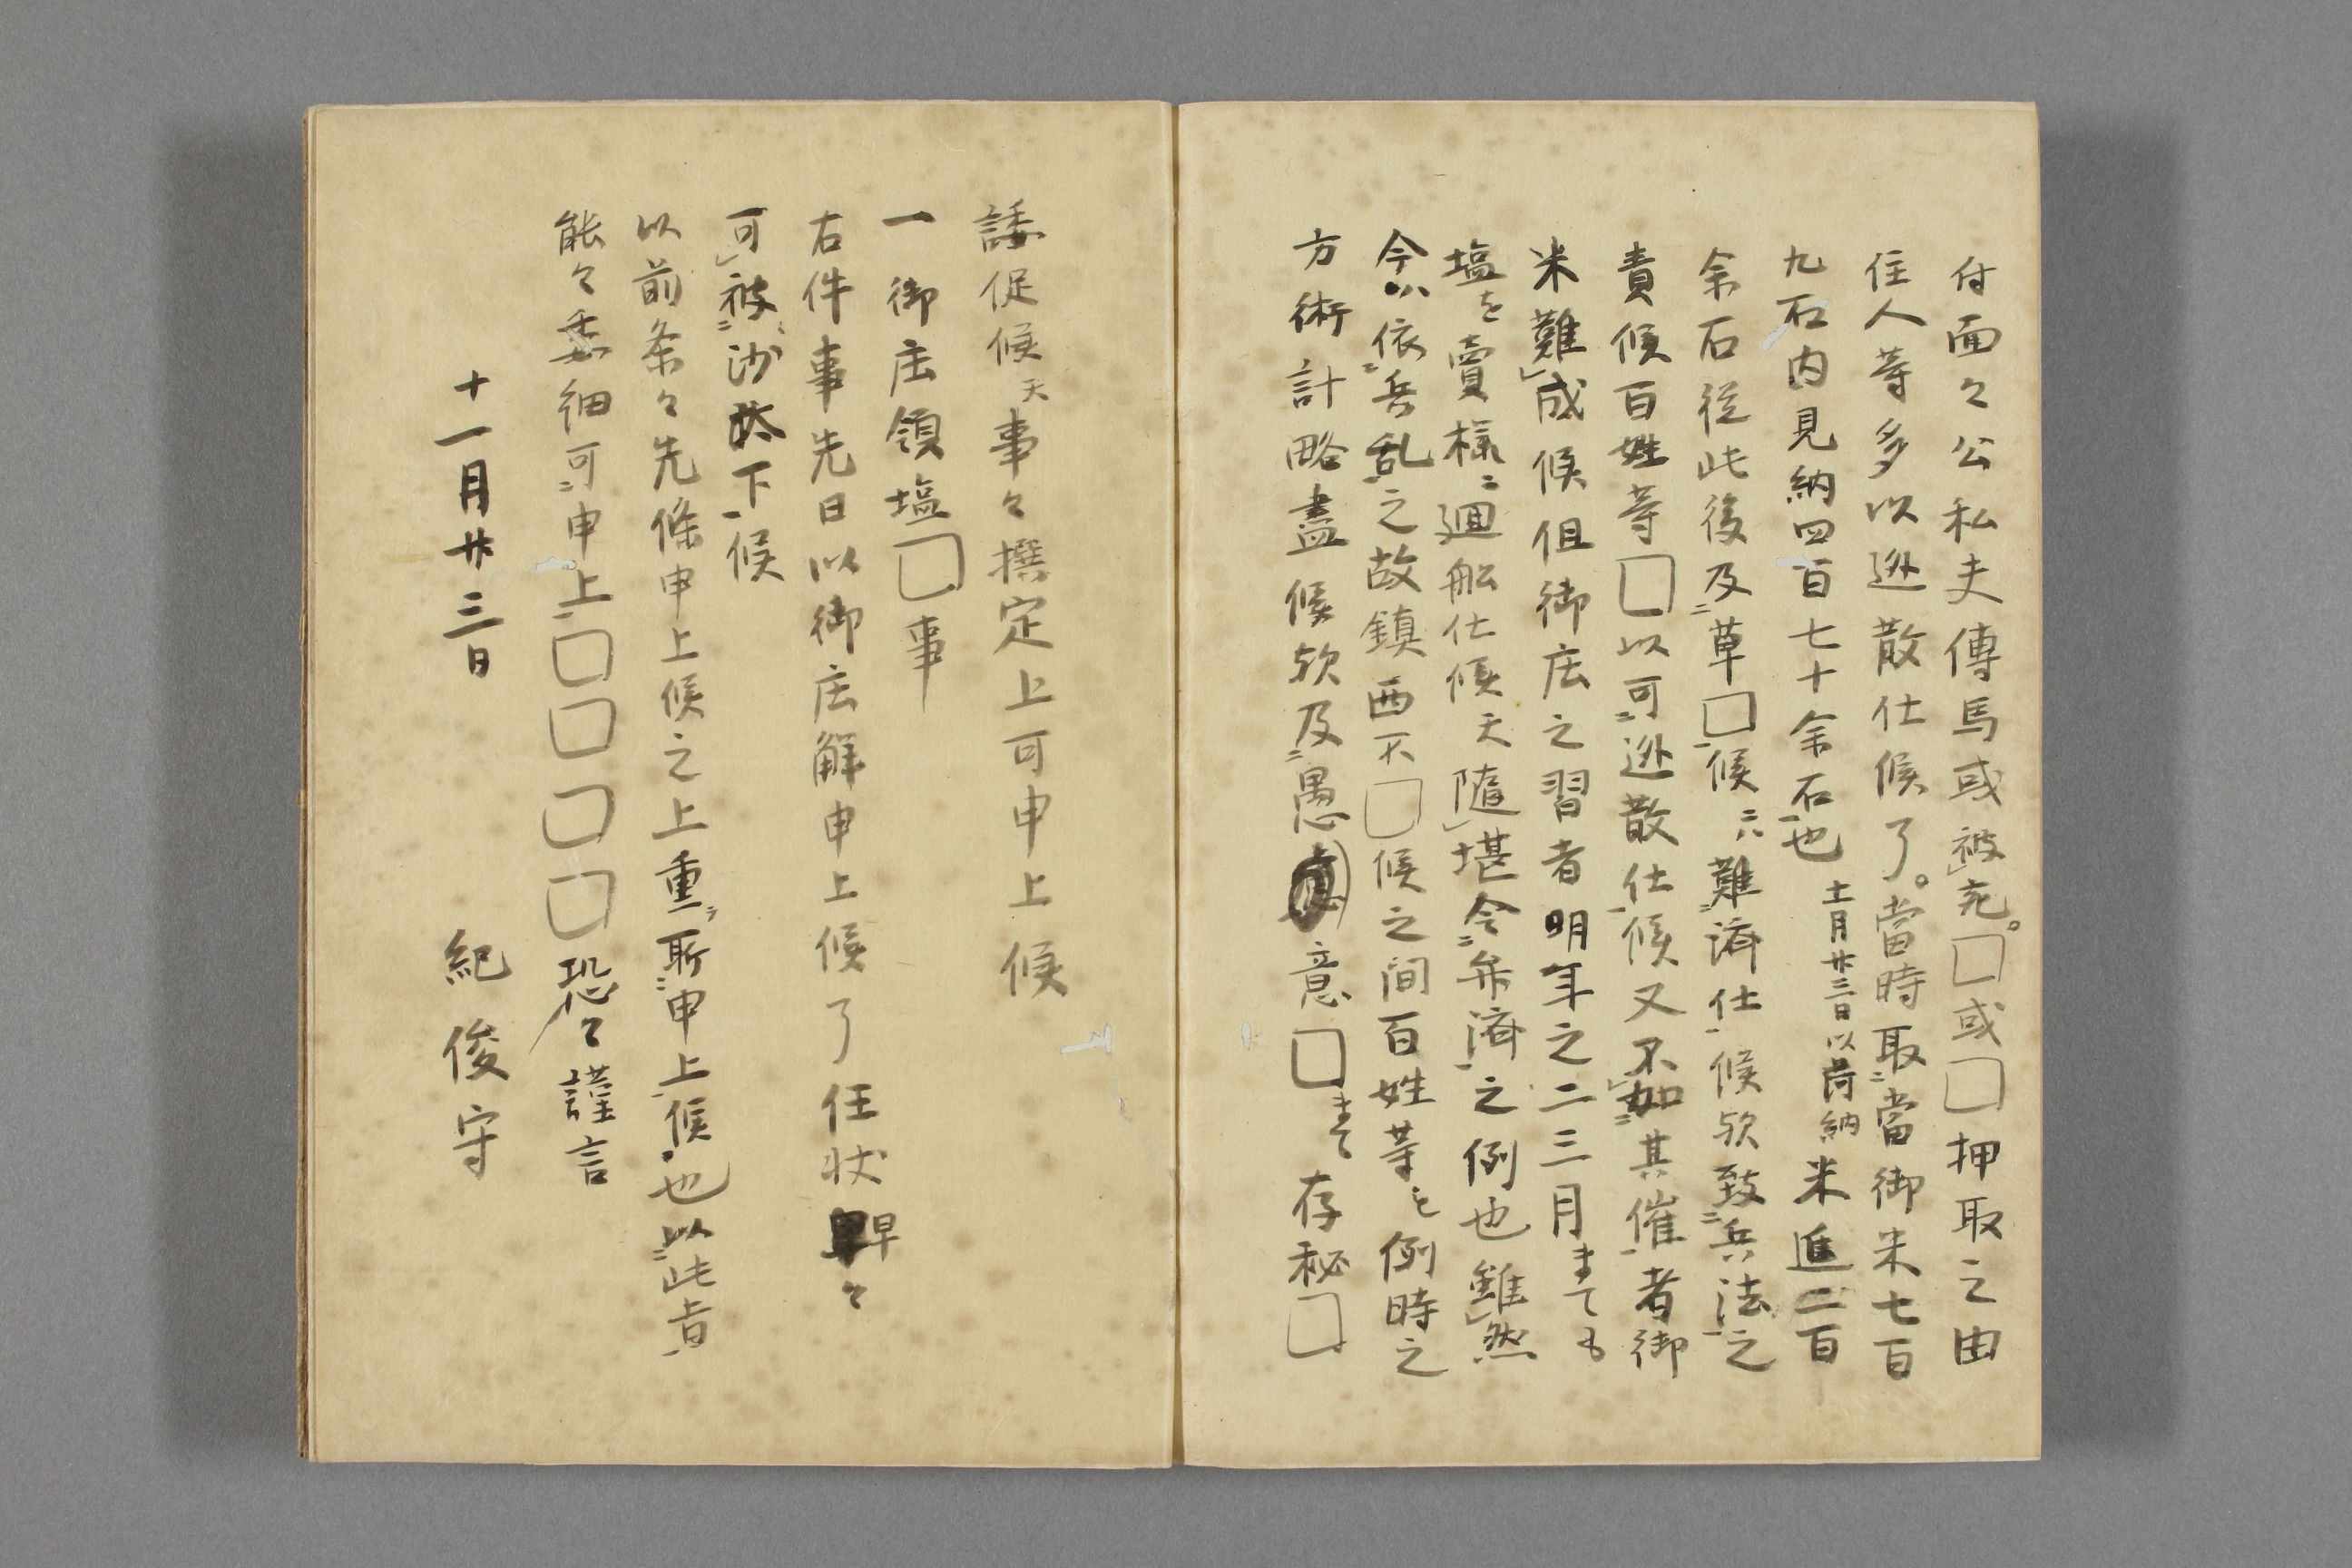 付面々公私夫傳馬或被充□或□押取之由
住人等多以逃散仕候了當時取當御米七百
九石内見納四百七十余石也 十一月廿三日以前納 米進二百
余石従此後及草□候ハ難済仕候欤致兵法之
責候百姓等□以可逃散仕候又不加其催者御
米難成候但御庄之習者明年之二三月まても
塩を賣様ニ廻船仕候天随堪令弁済之例也雖然
今ハ依兵乱之故鎮西不□候之间百姓等も例時之
方術計略盡候欤及愚意□まて存秘□
諉促候天事々撰定上可申上候
一御庄領塩□事
右件事先日以御庄解申上候了任状早々
可被沙汰下候
以前条々先條申上候之上重所申上候也以此旨
能々委細可申上□□□□恐々謹言
十一月廿三日
紀俊守